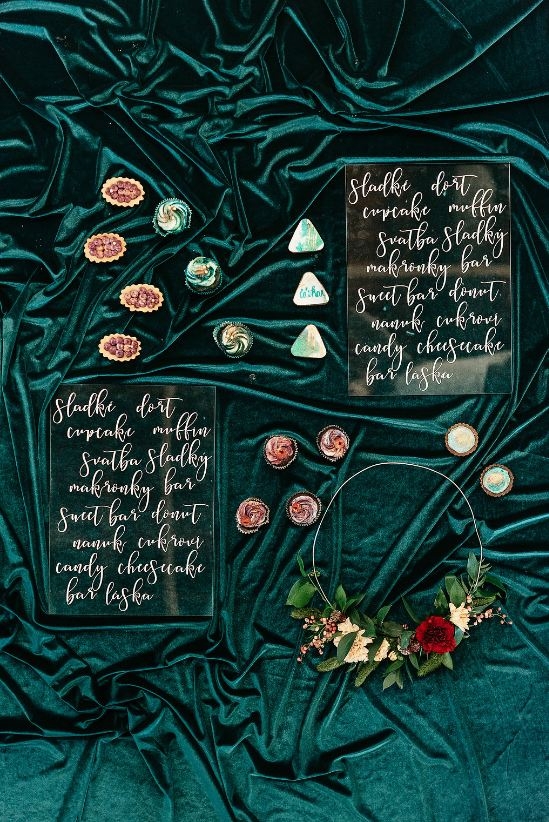 Sladké dort
cupcake muffin
Svatba Sladký
makronky bar
Sweet bar donut
nanuk cukroví
candy cheesecake
bar láska
Sladké dort
cupcake muffin
Svatba Sladký
makronky bar
Sweet bar donut
nanuk cukroví
candy cheesecake
bar láska